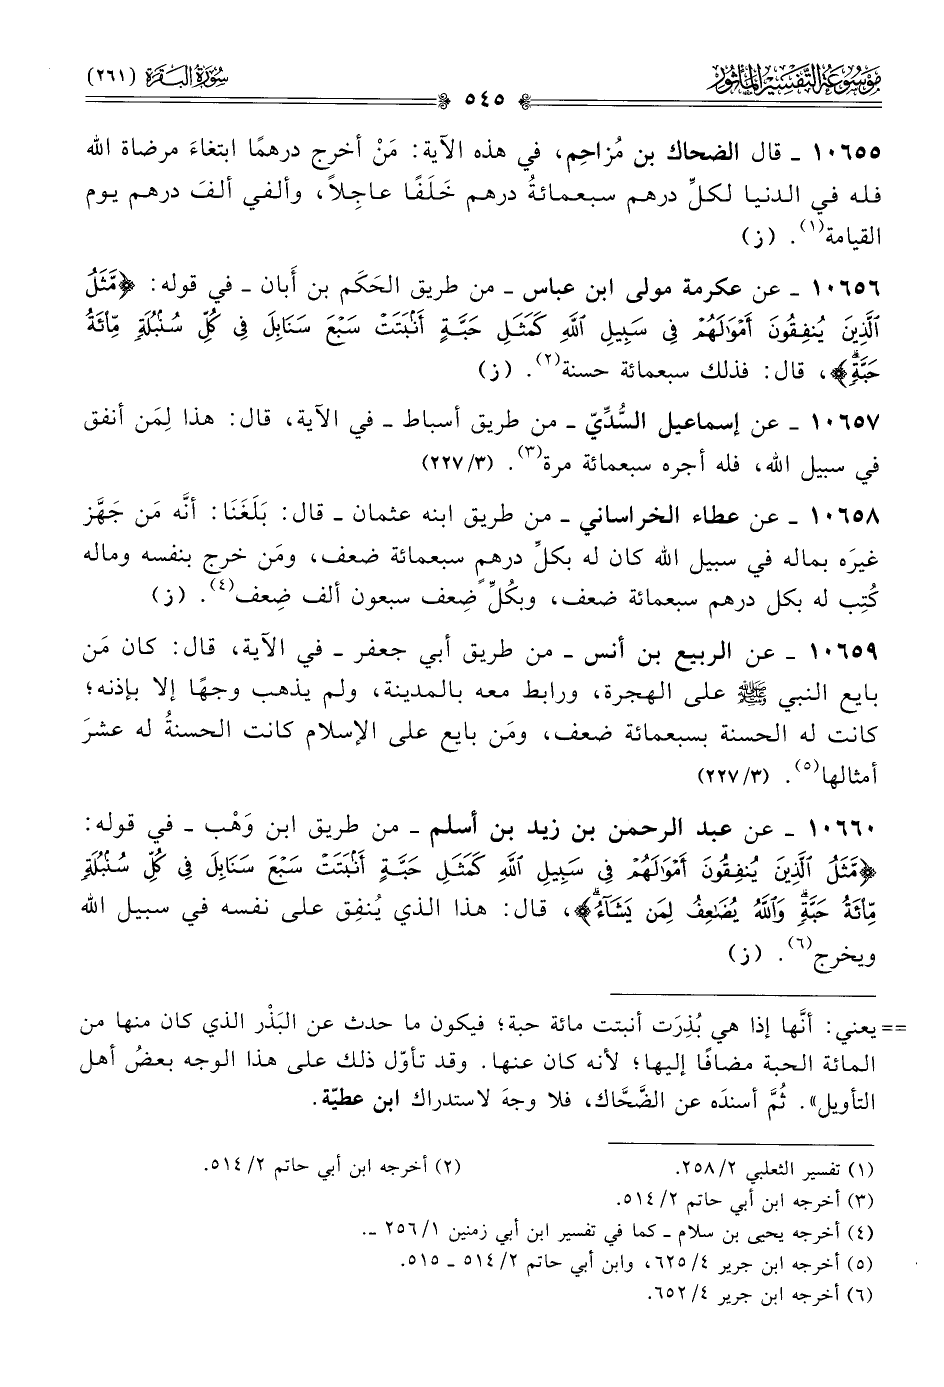 مَوْسُوعَةُ التَّفْسِيرِ المَأْثُور
سُورَةُ البَقَرَةِ (٢٦١)
٥٤٥
١٠٦٥٥ ـ قال الضحاك بن مُزاحِم، في هذه الآية: مَنْ أخرج درهمًا ابتغاءَ مرضاة الله
فله في الدنيا لكلِّ درهم سبعمائةُ درهم خَلَفًا عاجِلاً، وألفي ألفَ درهم يوم
القيامة(١). (ز)
١٠٦٥٦ ـ عن عكرمة مولى ابن عباس ـ من طريق الحَكَم بن أَبان ـ في قوله: ﴿مَّثَلُ
ٱلَّذِينَ يُنفِقُونَ أَمْوَٰلَهُمْ فِى سَبِيلِ ٱللَّهِ كَمَثَلِ حَبَّةٍ أَنۢبَتَتْ سَبْعَ سَنَابِلَ فِى كُلِّ سُنۢبُلَةٍ مِّا۟ئَةُ
حَبَّةٍۗ﴾، قال: فذلك سبعمائة حسنة(٢). (ز)
١٠٦٥٧ ـ عن إسماعيل السُّدِّيّ ـ من طريق أسباط ـ في الآية، قال: هذا لِمَن أنفق
في سبيل الله، فله أجره سبعمائة مرة(٣). (٣/ ٢٢٧)
١٠٦٥٨ ـ عن عطاء الخراساني ـ من طريق ابنه عثمان ـ قال: بَلَغَنَا: أنَّه مَن جَهَّز
غيرَه بماله في سبيل الله كان له بكلِّ درهمٍ سبعمائة ضعف، ومَن خرج بنفسه وماله
كُتِب له بكل درهم سبعمائة ضعف، وبكُلِّ ضِعف سبعون ألف ضِعف(٤). (ز)
١٠٦٥٩ ـ عن الربيع بن أنس ـ من طريق أبي جعفر ـ في الآية، قال: كان مَن
بايع النبي ﷺ على الهجرة، ورابط معه بالمدينة، ولم يذهب وجهًا إلا بإذنه؛
كانت له الحسنة بسبعمائة ضعف، ومَن بايع على الإسلام كانت الحسنةُ له عشرَ
أمثالها(٥). (٣/ ٢٢٧)
١٠٦٦٠ ـ عن عبد الرحمن بن زيد بن أسلم ـ من طريق ابن وَهْب ـ في قوله:
﴿مَّثَلُ ٱلَّذِينَ يُنفِقُونَ أَمْوَٰلَهُمْ فِى سَبِيلِ ٱللَّهِ كَمَثَلِ حَبَّةٍ أَنۢبَتَتْ سَبْعَ سَنَابِلَ فِى كُلِّ سُنۢبُلَةٍ
مِّا۟ئَةُ حَبَّةٍۗ وَٱللَّهُ يُضَٰعِفُ لِمَن يَشَآءُۗ﴾، قال: هذا الذي يُنفِق على نفسه في سبيل الله
ويخرج(٦). (ز)
== يعني: أنَّها إذا هي بُذِرَت أنبتت مائة حبة؛ فيكون ما حدث عن البَذْر الذي كان منها من
المائة الحبة مضافًا إليها؛ لأنه كان عنها. وقد تأوّل ذلك على هذا الوجه بعضُ أهل
التأويل». ثُمَّ أسندَه عن الضَّحَّاك، فلا وجهَ لاستدراك ابن عطيّة.
(١) تفسير الثعلبي ٢/ ٢٥٨.
(٢) أخرجه ابن أبي حاتم ٢/ ٥١٤.
(٣) أخرجه ابن أبي حاتم ٢/ ٥١٤.
(٤) أخرجه يحيى بن سلام ـ كما في تفسير ابن أبي زمنين ١/ ٢٥٦ ـ.
(٥) أخرجه ابن جرير ٤/ ٦٢٥، وابن أبي حاتم ٢/ ٥١٤ ـ ٥١٥.
(٦) أخرجه ابن جرير ٤/ ٦٥٢.